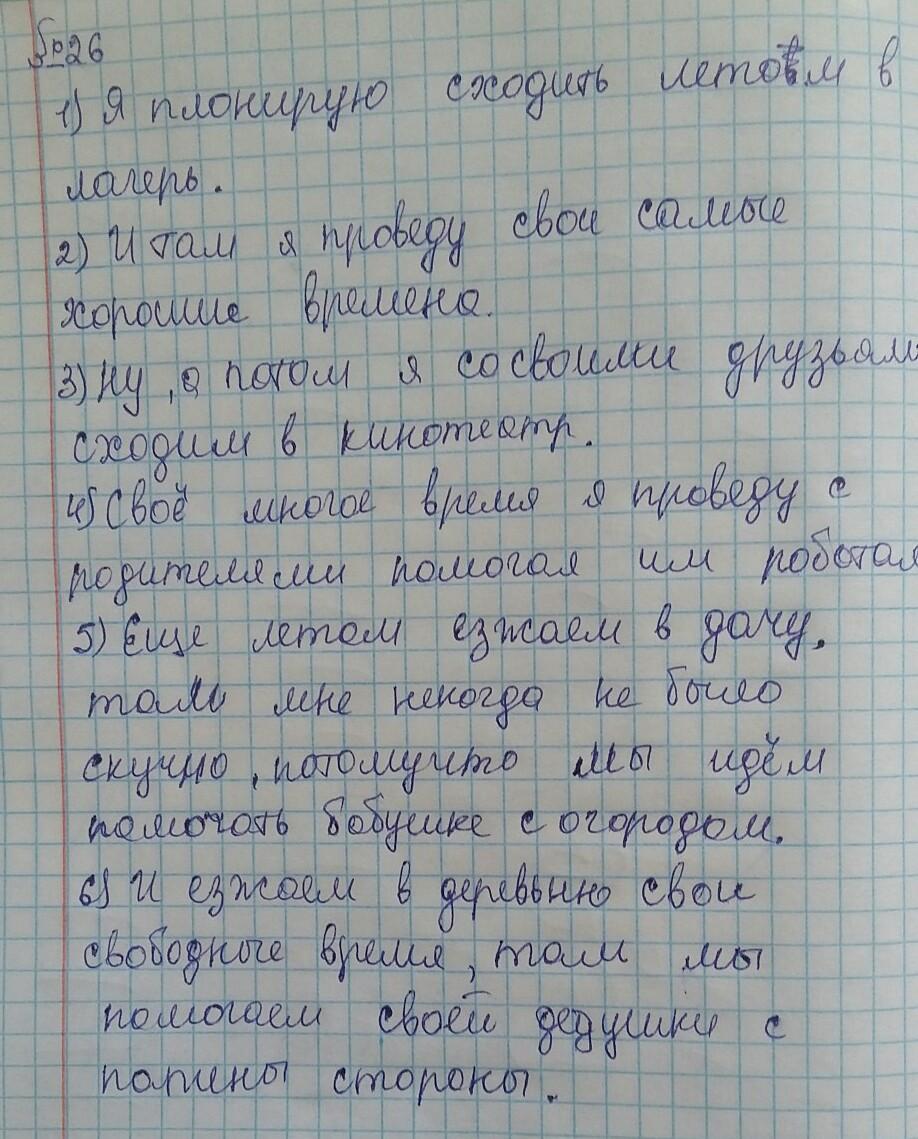 №26
1) Я планирую сходить летом в
лагерь.
2) И там я проведу свои самые
хорошие времена.
3) Ну, а потом я со своими друзьями
сходим в кинотеатр.
4) Своё многое время я проведу с
родителями помогая им работая
5) Еще летом езжаем в дачу,
там мне некогда не было
скучно, потомучто мы идём
помочать бабушке с огородом.
6) И езжаем в деревьню свои
свободные время, там мы
помогаем своей дедушки с
папины стороны.